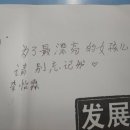 为了最漂亮的女孩儿
请别忘记我♡
李怡霖
发展